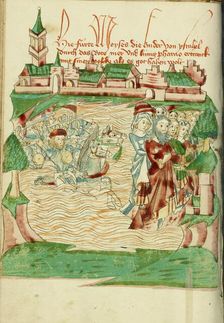 Hie furte Moyses die kinder von ysrahel
durch das rote mer Vnd kunig pharao ertranck
mit sinem volcke als es got haben wolt